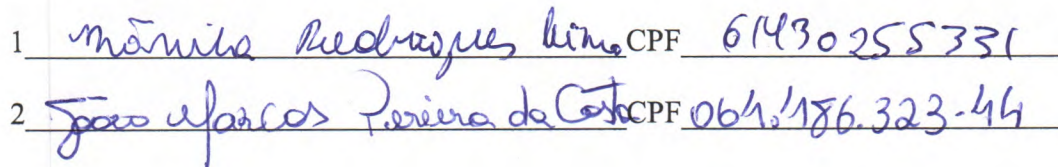 1 Mânila Rodrigues Lima CPF 61430255331
2 João Marcos Pereira da Costa CPF 061.186.323-44